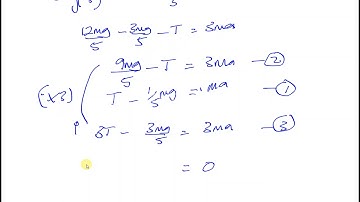 12mg/5 - 3mg/5 - T = 3ma
9mg/5 - T = 3ma —②
(×3) T - 1/5 mg = ma —①
3T - 3mg/5 = 3ma —③
= 0